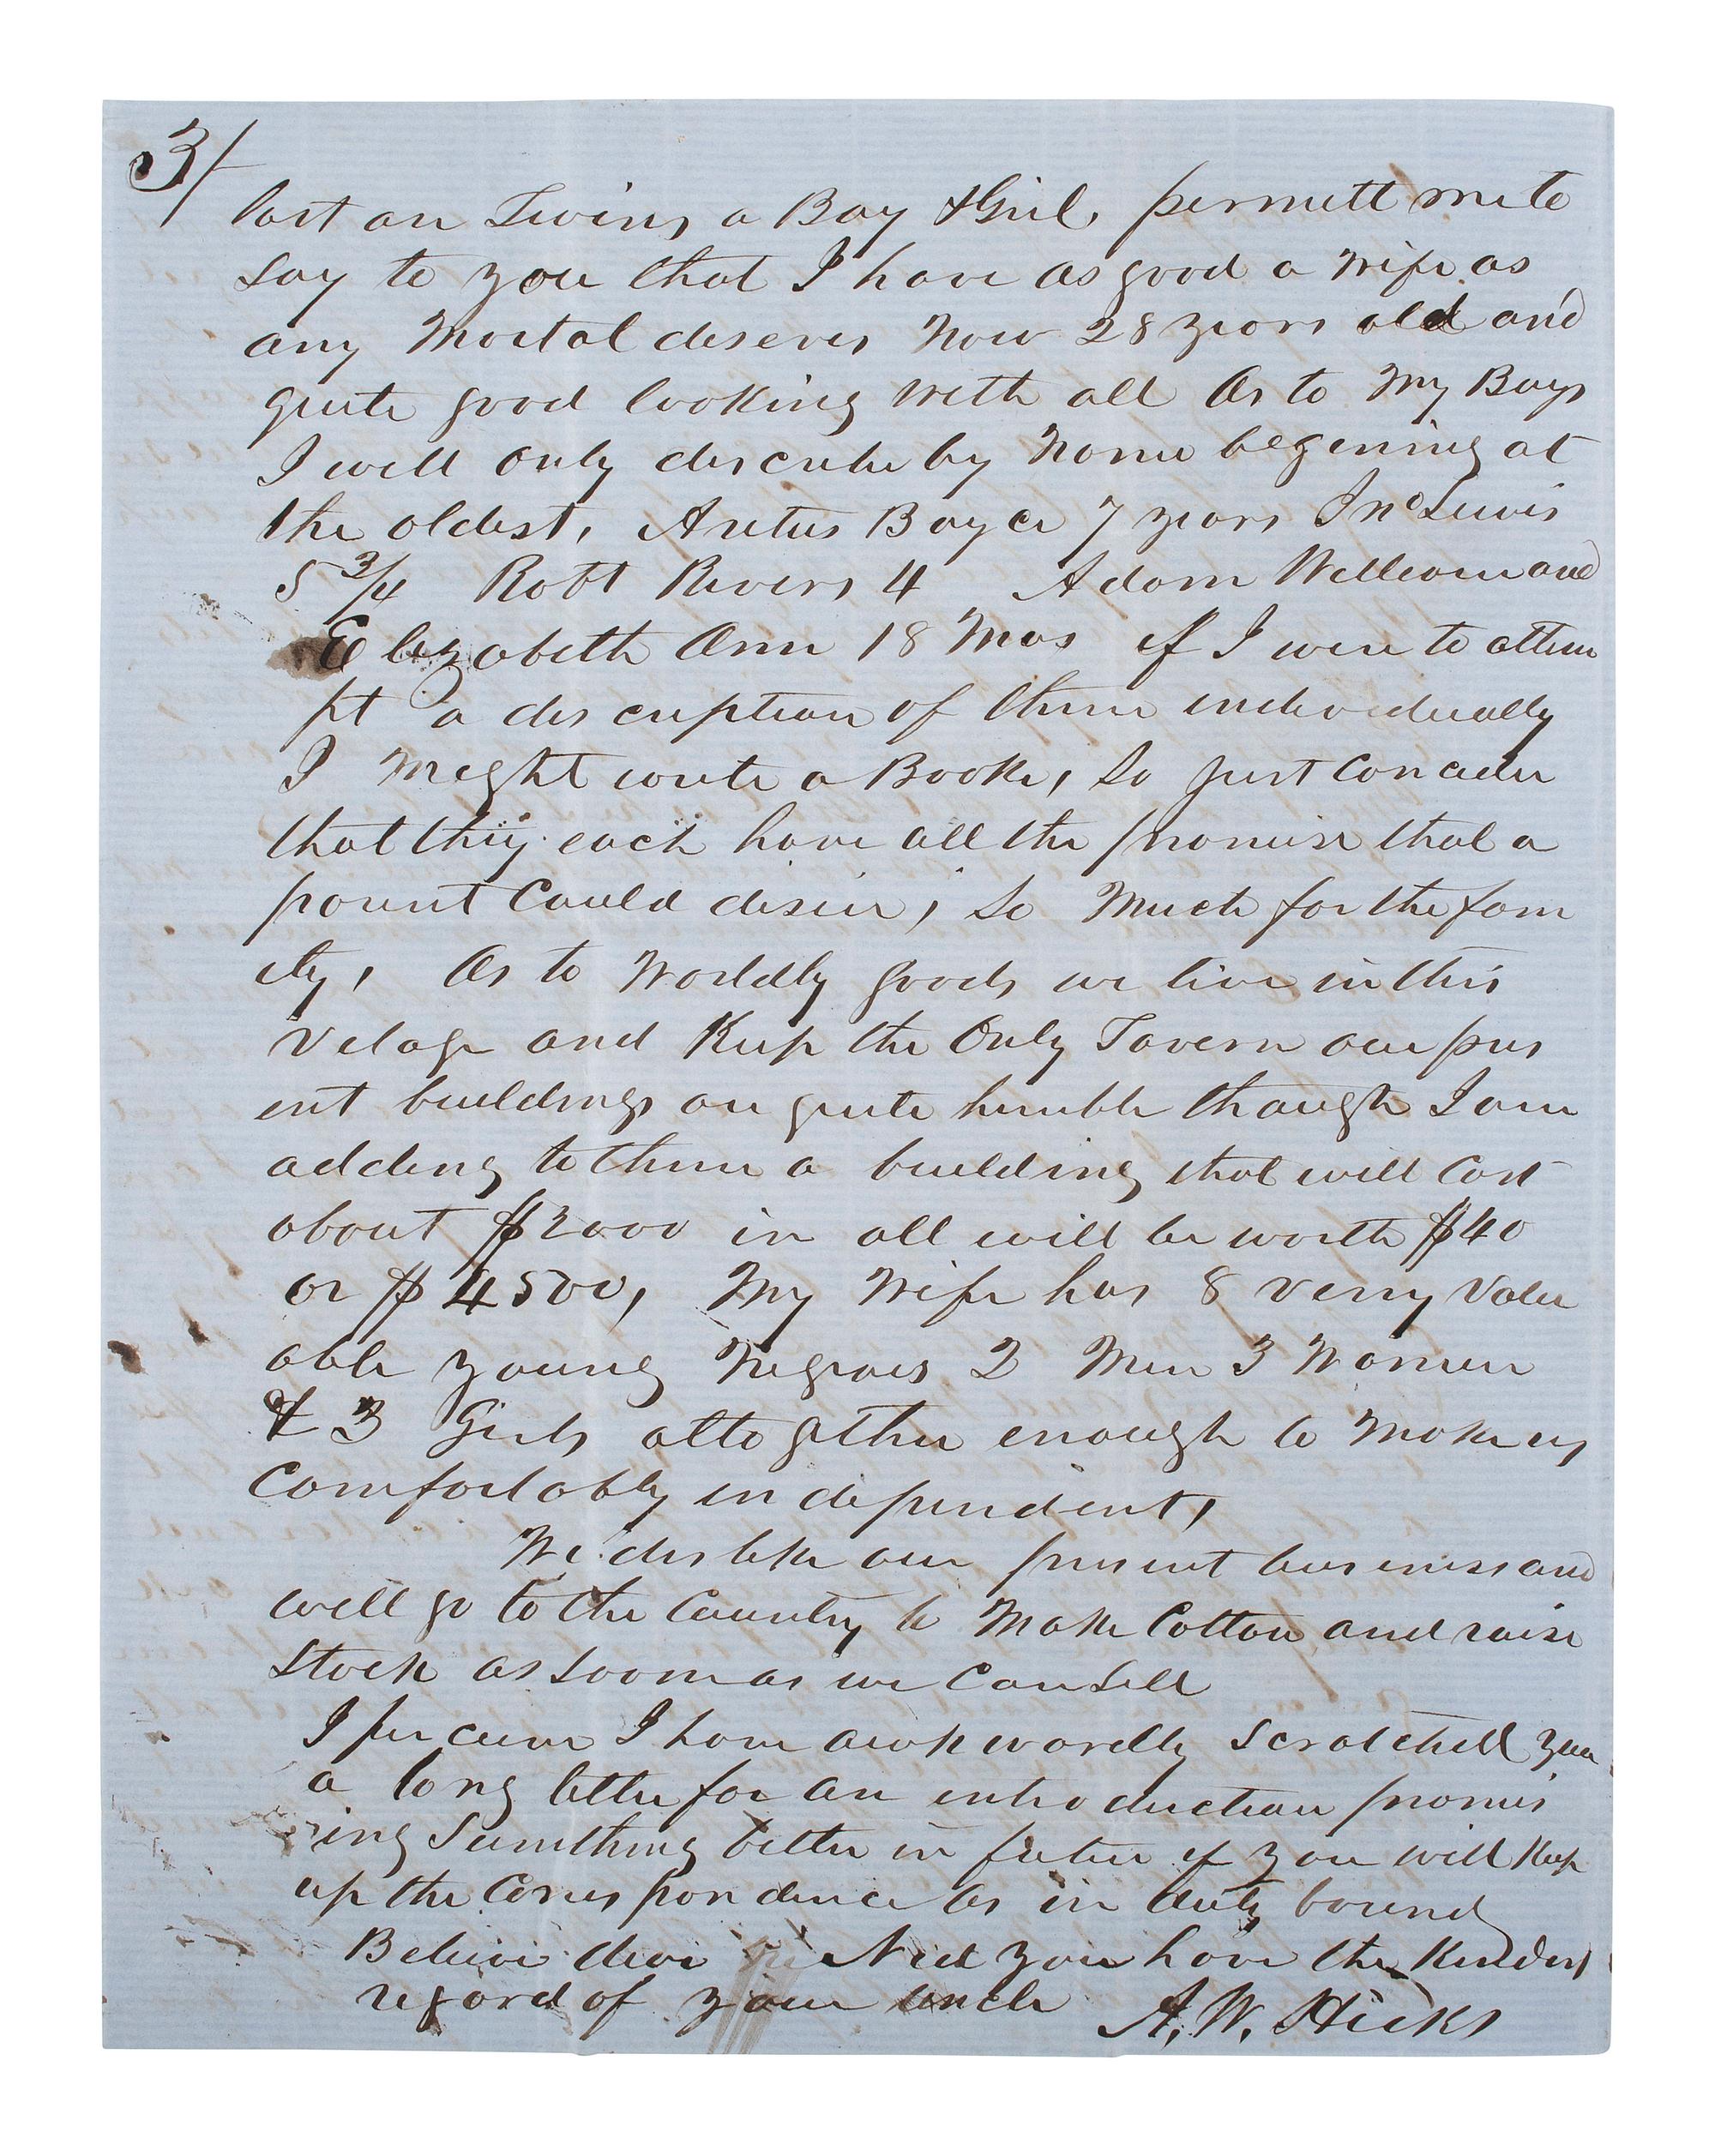 3/
last are Twins, a Boy & Girl, permitt me to
say to you that I have as good a Wife as
any Mortal deserves Now 28 years old and
quite good looking with all As to My Boys
I will only describe by Name begening at
the oldest, Aretus Boyce 7 years Jno Lewis
5 3/4 Robt Rivers 4 Adam William and
Elizabeth Ann 18 Mos if I were to attem
pt a discription of them individually
I might write a Book, So just Concider
that they each have all the promise that a
parent Could desire, So Much for the fam
ily, As to Worldly goods we live in this
Vilage and Keep the Only Tavern our pres
ent buildings are quite humble though I am
adding to them a building that will Cost
about $2000 in all will be worth $40
or $4500, My Wife has 8 verry Valu
able young Negroes 2 Men 3 Women
& 3 Girls alltogether enough to Make us
Comfortably independent,
We dislike our present business and
will go to the Country to Make Cotton and raise
Stock as soon as we Can Sell
I percieve I have awkwardly Scratched you
a long letter for an introduction promis
ing Something better in future if you will Keep
up the Correspondence As in duty bound
Believe dear Ned you have the Kindest
regard of your uncle A. W. Hicks